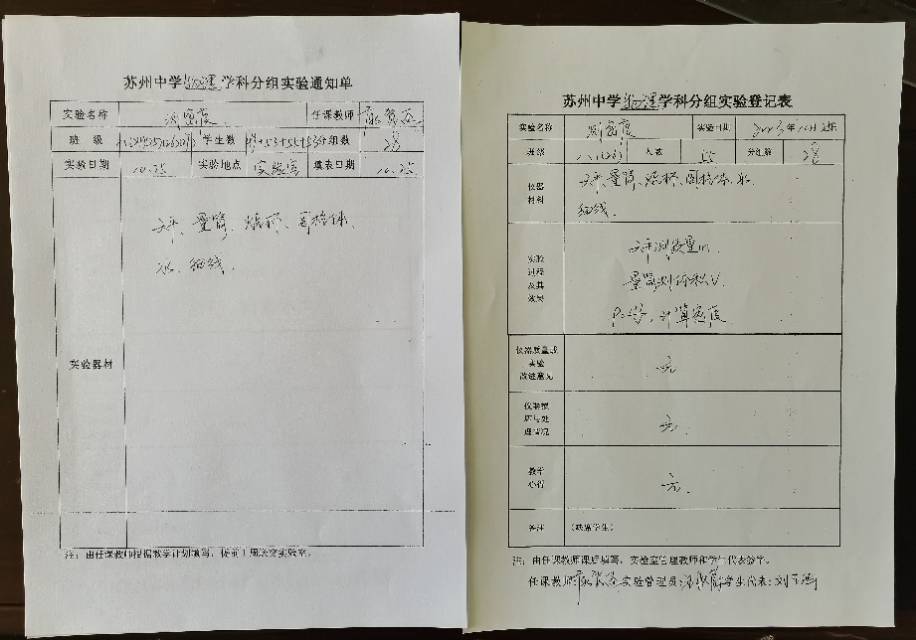 苏州中学物理学科分组实验通知单
实验名称 测密度 任课教师
班级 学生数 分组数 28
实验日期 10.25 实验地点 实验室 填表日期 10.25
实验器材
天平、量筒、烧杯、固体、
水、细线.
注:由任课教师根据教学计划填写,提前1周送交实验室。
苏州中学物理学科分组实验登记表
实验名称 测密度 实验日期
班级 人数 55 分组数 28
仪器材料
天平、量筒、烧杯、固体、水、
细线.
实验过程及其效果
天平测质量m.
量筒测体积V.
计算密度
仪器质量或实验改进意见
无
仪器损坏与处理情况
无.
教学心得
无.
备注 (缺席学生)
注:由任课教师课后填写,实验室管理教师和学生代表签字。
任课教师: 实验管理员: 学生代表: